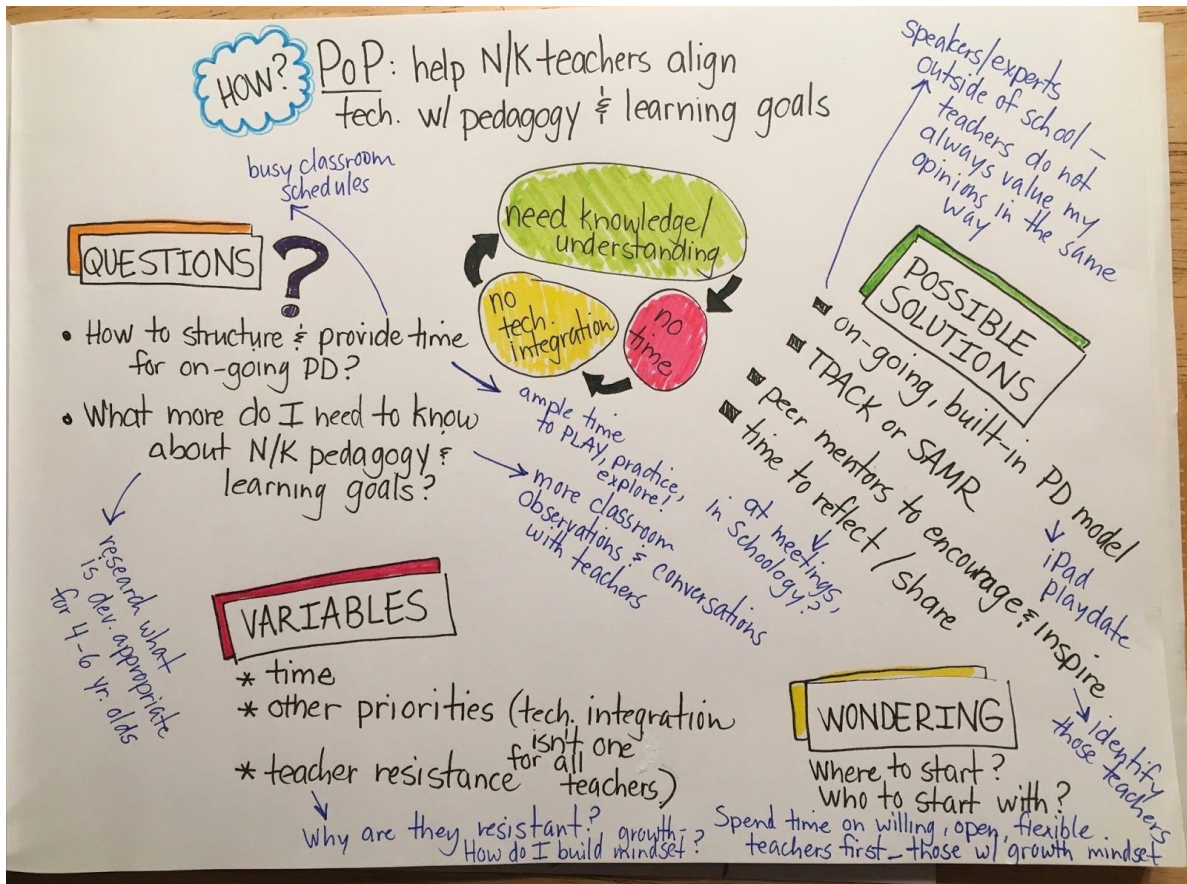 HOW?
PoP: help N/K teachers align
tech. w/ pedagogy & learning goals
busy classroom
schedules
speakers/experts
outside of school –
teachers do not
always value my
opinions in the same
way
need knowledge/
understanding
no
time
no
tech.
integration
QUESTIONS ?
• How to structure & provide time
for on-going PD?
• What more do I need to know
about N/K pedagogy &
learning goals?
ample time
to PLAY, practice,
explore!
more classroom
Observations & conversations
with teachers
research what
is dev. appropriate
for 4-6 yr. olds
POSSIBLE
SOLUTIONS
on-going, built-in PD model
TPACK or SAMR
peer mentors to encourage & inspire
time to reflect / share
iPad
playdate
at meetings,
in Schoology?
identify
those teachers
VARIABLES
* time
* other priorities (tech. integration
isn't one
for all
teachers)
* teacher resistance
Why are they resistant?
How do I build growth-mindset?
WONDERING
Where to start?
Who to start with?
Spend time on willing, open, flexible
teachers first – those w/ growth mindset